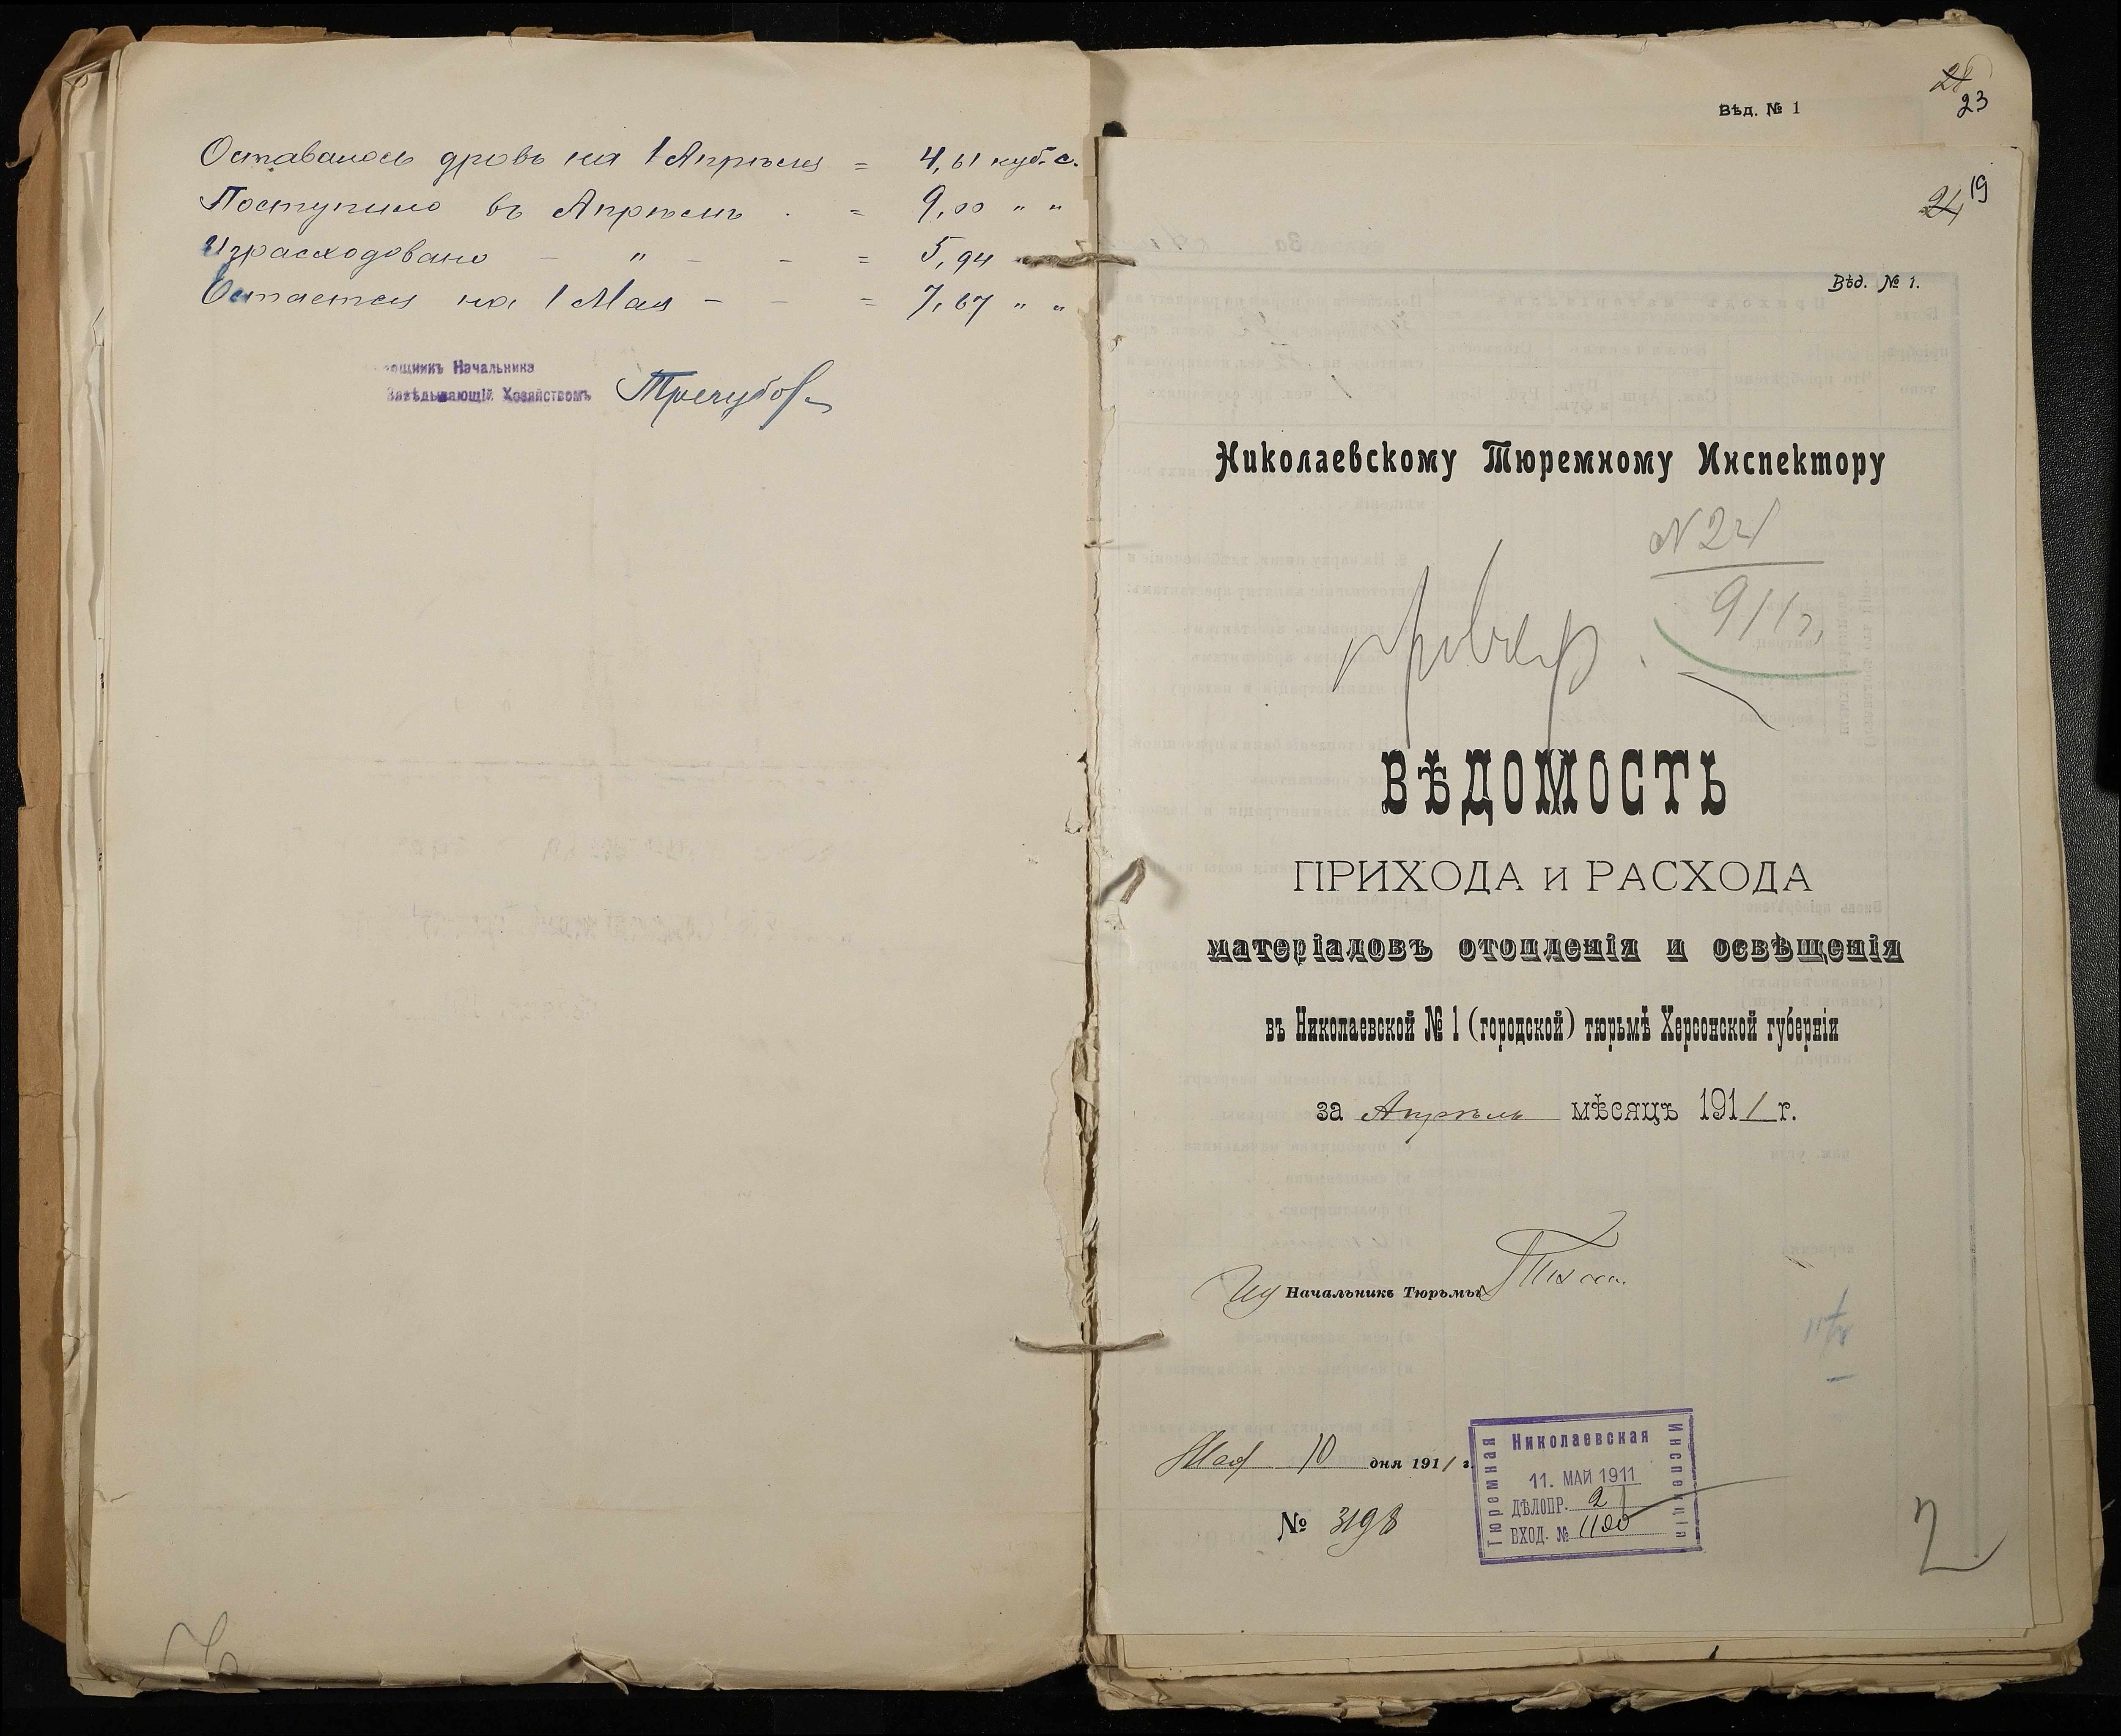 Оставалось дровъ на 1 Апрѣля = 4,61 куб. с.
Поступило въ Апрѣлѣ . = 9,00 " "
Израсходовано - " - - = 5,94
Остается на 1 Мая - - = 7,67 " "
ощникъ Начальника
Завѣдывающій Хозяйствомъ
23
Вѣд. № 1
24 19
Вѣд. № 1.
Николаевскому Тюремному Инспектору
N 24
911 г.
провер.
ВѢДОМОСТЬ
ПРИХОДА и РАСХОДА
матеріаловъ отопленія и освѣщенія
въ Николаевской № 1 (городской) тюрьмѣ Херсонской губерніи
за Апрѣль мѣсяцъ 1911 г.
Начальникъ Тюрьмы
Мая 10 дня 1911 г.
№ 3198
Николаевская
Тюремная
Инспекція
11. МАЙ 1911
ДѢЛОПР. 2
ВХОД. № 1100
2